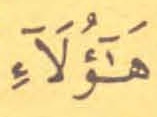 هَٰٓؤُلَآءِ